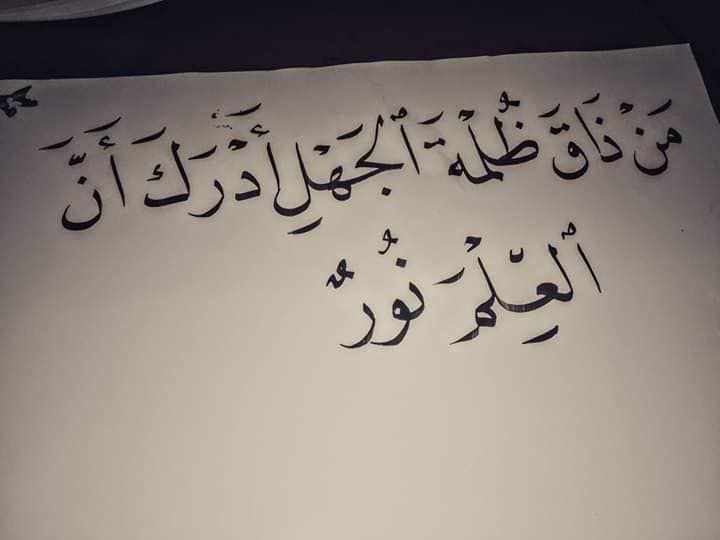 مَنْ ذَاقَ ظُلْمَةَ ٱلْجَهْلِ أَدْرَكَ أَنَّ
ٱلْعِلْمَ نُورٌ